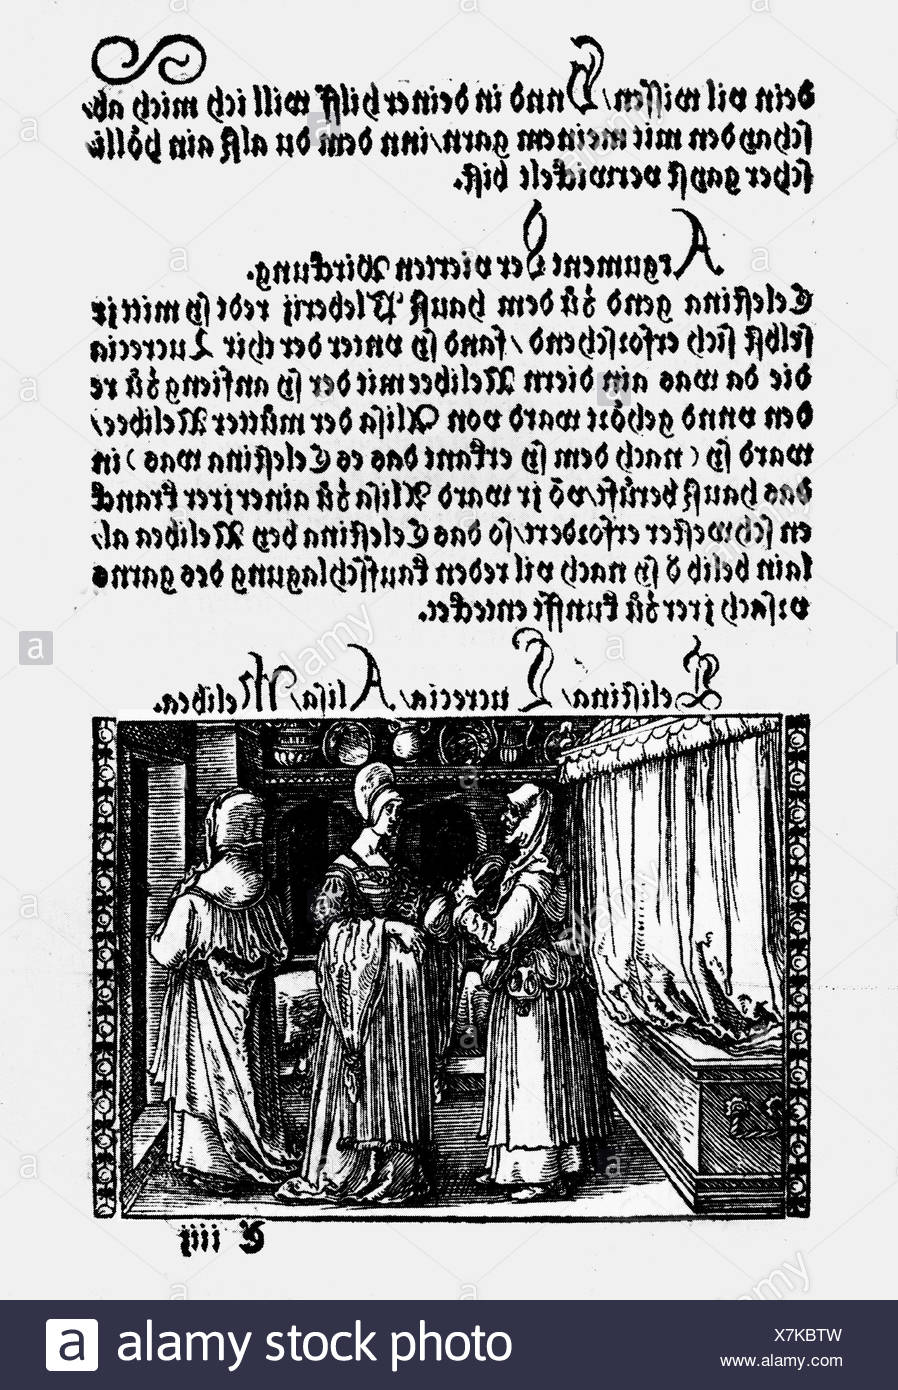 dein vil wissen/ Unnd in deiner hilff will ich mich ab/
schayden mit meinem garn/inn dem du alß ain hölli
scher gayst verwickelt bist.
Argument der vierten Würckung.
Celestina gend zů dem hauß Pleberij redt sy mit jr
selbst sich erforschend/fand sy unter der thir Lucrecia
die da was ain diern Melibee mit der sy anfieng zů re
den unnd gehört ward von Alisa der můtter Melibee/
ward sy (nach dem sy erkant das es Celestina was) in
das hauß berůfft/ jr ward Alisa zů ainer jrer kranck
en schwester erfordert/so das Celestina bey Melibea al/
lain belib sy nach vil reden kauffschlagung des garns
ursach jrer zů kunfft entecket.
Celestina/ Lucrecia/ Alisa/ Melibea.
C iiij
alamy
a alamy stock photo
X7KBTW
www.alamy.com